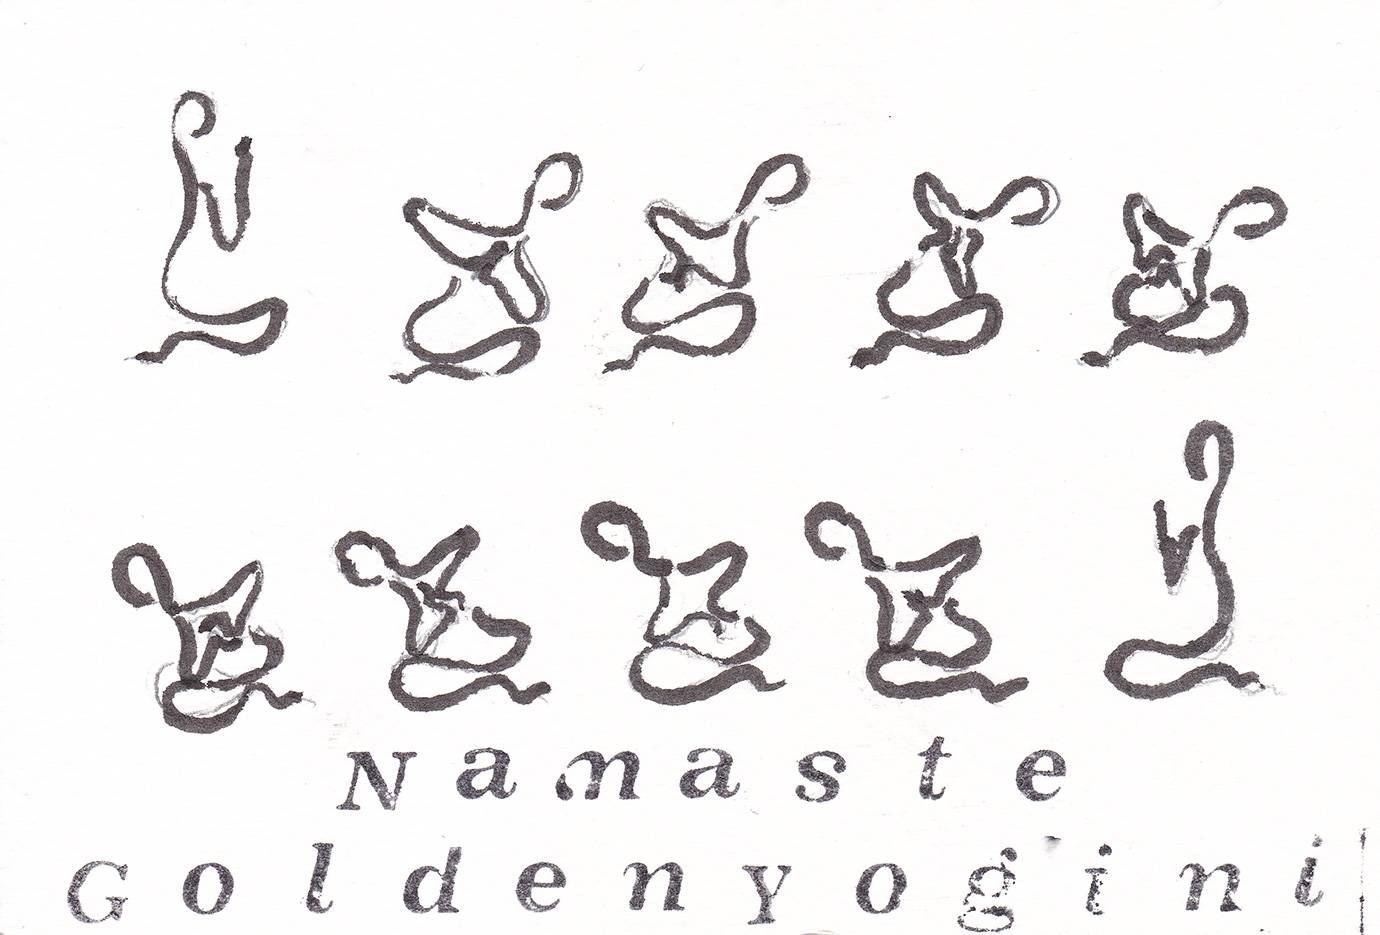 Namaste
Goldenyogini